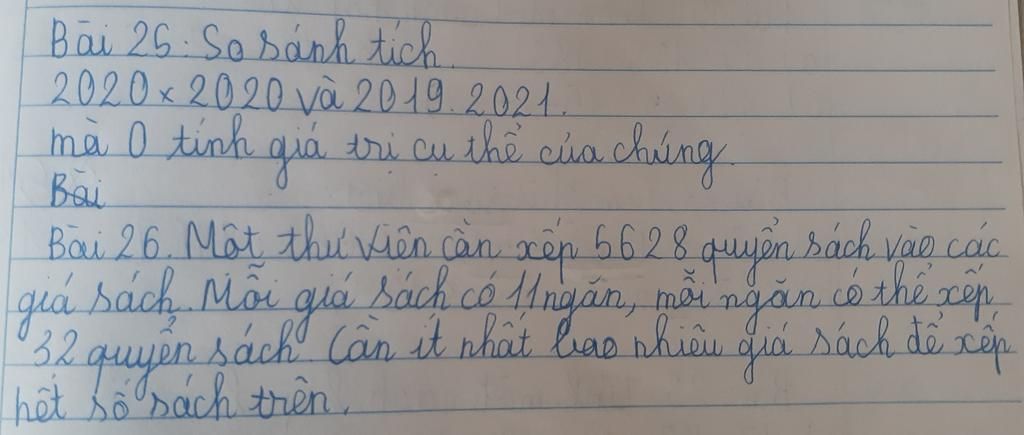 Bài 25. So sánh tích
2020 x 2020 và 2019. 2021.
mà 0 tính giá trị cụ thể của chúng.
Bài
Bài 26. Một thư viện cần xếp 5628 quyển sách vào các
giá sách. Mỗi giá sách có 11 ngăn, mỗi ngăn có thể xếp
32 quyển sách. Cần ít nhất bao nhiêu giá sách để xếp
hết số sách trên.